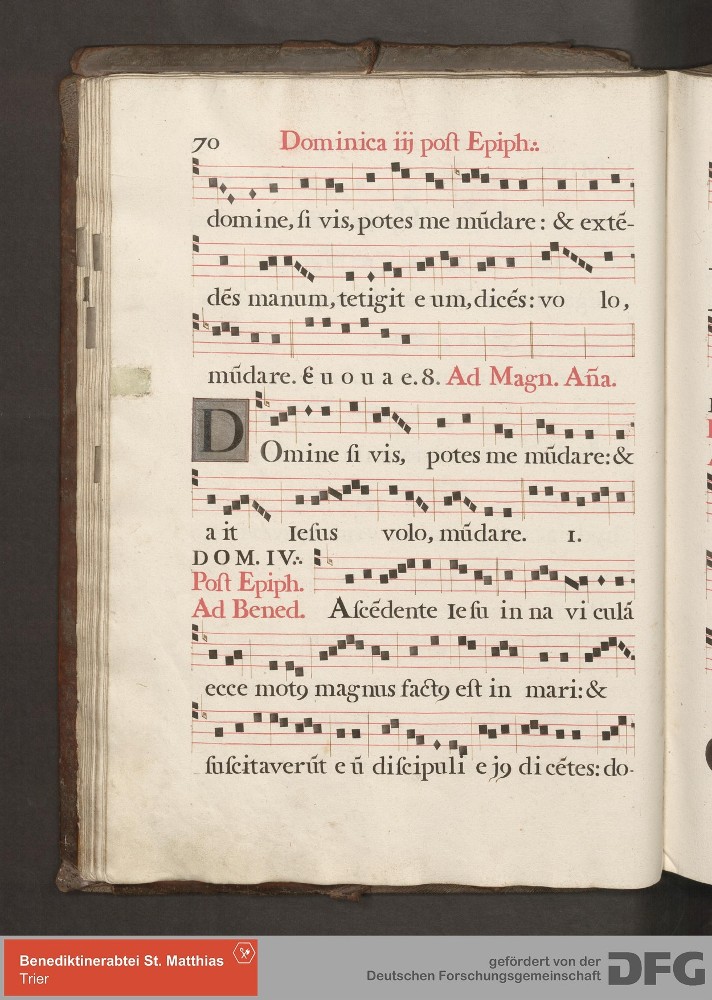 70 Dominica iij poſt Epiph.
domine, ſi vis, potes me mūdare: & extē-
dēs manum, tetigit eum, dicēs: vo lo,
mūdare. E u o u a e. 8. Ad Magn. Aña.
DOmine ſi vis, potes me mūdare: &
ait Ieſus volo, mūdare. 1.
DOM. IV.
Poſt Epiph.
Ad Bened. Aſcēdente Ieſu in na viculā
ecce motꝯ magnus factꝯ eſt in mari: &
ſuſcitaverūt eū diſcipuli ejꝯ dicētes: do-
Benediktinerabtei St. Matthias
Trier
gefördert von der
Deutschen Forschungsgemeinschaft DFG